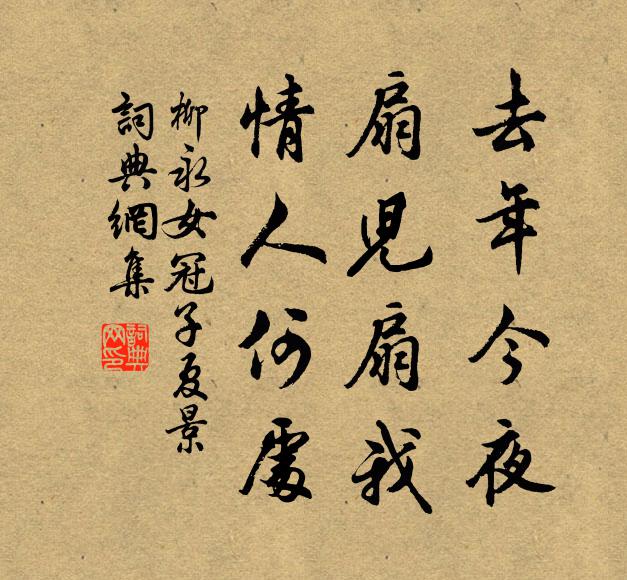 去年今夜
扇児扇我
情人何處
柳永女冠子夏景
詞典網集
詞典网印